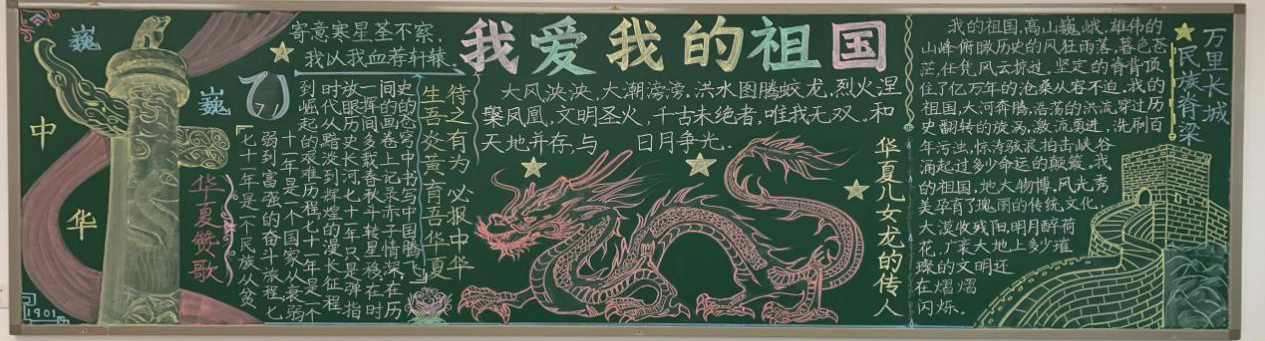 我爱我的祖国
巍
巍
中
华
华夏赞歌
1901
寄意寒星荃不察,
我以我血荐轩辕.
『七十一年是一个民族从贫
弱到富强的奋斗旅程,七
十一年是一个国家从衰弱
到崛起的艰难历程,七十一年是一个
时代从黯淡到辉煌的漫长征程.
放眼历史长河,七十年只是弹指
一挥间,多载春秋斗转星移,在时
间的画卷上记录赤子情深,在历
史的苍穹中书写中国腾飞』
生吾炎黄育吾华夏
待之有为 必报中华
大风泱泱,大潮滂滂.洪水图腾蛟龙,烈火涅
槃凤凰,文明圣火,千古未绝者,唯我无双.和
天地并存,与 日月争光.
华夏儿女龙的传人
我的祖国,高山巍峨,雄伟的
山峰俯瞰历史的风狂雨落,暮色苍
茫,任凭风云掠过,坚定的脊背顶
住了亿万年的沧桑从容不迫.我的
祖国,大河奔腾,浩荡的洪流穿过历
史翻转的旋涡,激流勇进,洗刷百
年污浊,惊涛骇浪拍击峡谷
涌起过多少命运的颠簸.我
的祖国,地大物博,风光秀
美孕育了瑰丽的传统文化,
大漠收残阳,明月醉荷
花,广袤大地上多少璀
璨的文明还
在熠熠
闪烁。
万里长城
民族脊梁